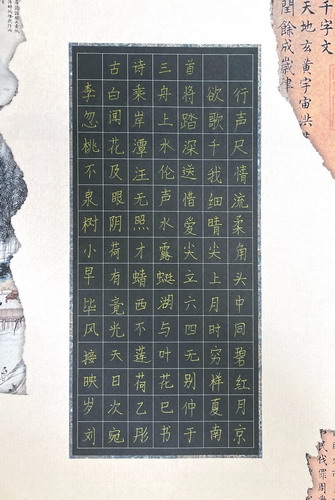 古诗三首
李白乘舟将欲行
忽闻岸上踏歌声
桃花潭水深千尺
不及汪伦送我情
泉眼无声惜细流
树阴照水爱晴柔
小荷才露尖尖角
早有蜻蜓立上头
毕竟西湖六月中
风光不与四时同
接天莲叶无穷碧
映日荷花别样红
岁次乙巳仲夏月
刘宛彤书于南京
千字文
天地玄黃宇宙
閏餘成歲律
民伐罪周